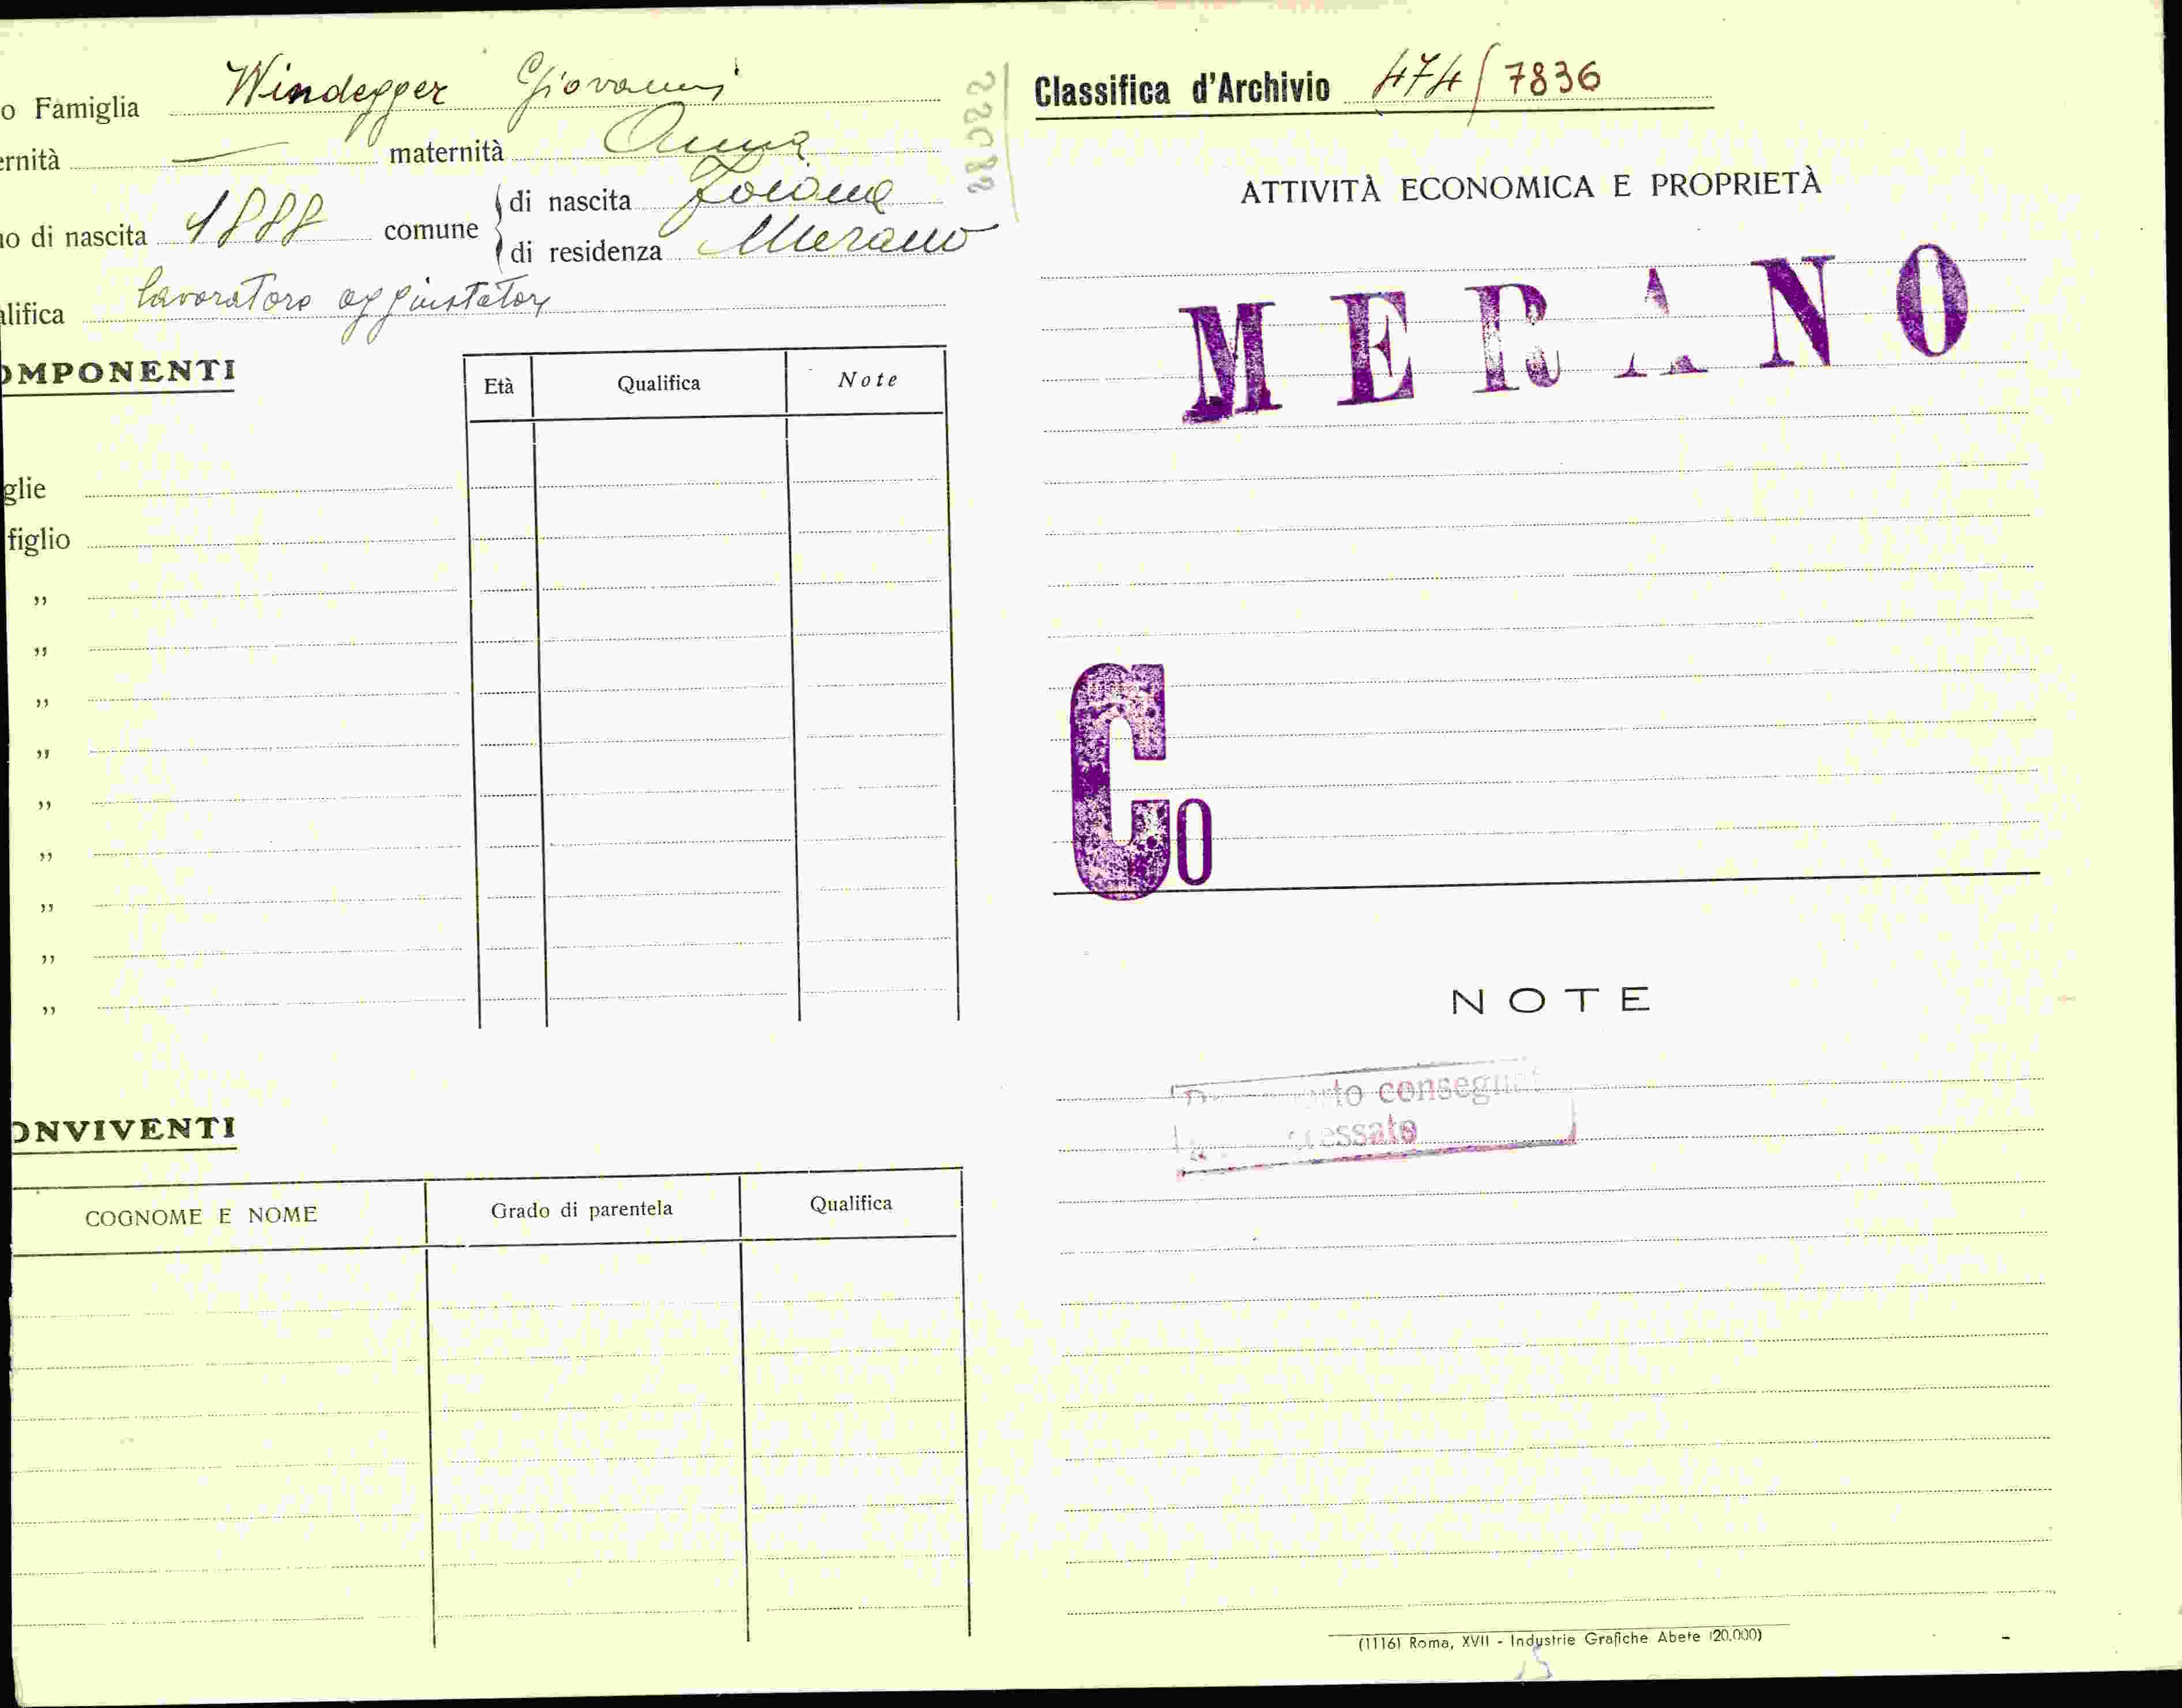 o Famiglia Windegger Giovanni
ernità — maternità Anna
no di nascita 1888 comune di nascita
di residenza Merano
alifica lavoratore aggiustatore
OMPONENTI
Età Qualifica Note
glie
figlio
„
„
„
„
„
„
„
„
„
ONVIVENTI
COGNOME E NOME Grado di parentela Qualifica
Classifica d'Archivio 474/7836
ATTIVITÀ ECONOMICA E PROPRIETÀ
MERANO
Co
NOTE
(1116) Roma, XVII - Industrie Grafiche Abete (20.000)
15